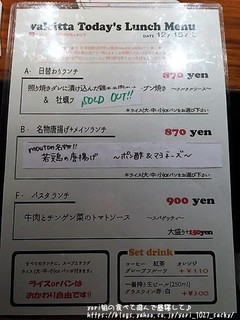 valcitta Today's Lunch Menu
DATE 12/15
A・日替わりランチ
870 yen
照り焼きダレに漬け込んだ
オーブン焼き
& 牡蠣
SOLD OUT!!
※ライス(大・中・小)orパンをお選び下さい
B・名物唐揚げ+メインランチ
870 yen
mouton名物!!
若鶏の唐揚げ
〜ポン酢&マヨネーズ〜
※ライス(大・中・小)orパンをお選び下さい
F・パスタランチ
900 yen
牛肉とチンゲン菜のトマトソース
〜スパゲッティ〜
大盛り+150yen
すべてのランチに、スープとサラダ
ライス(大・中・小)
orパンが付きます。
ライスorパンは
おかわり自由です!!
Set drink
コーヒー 紅茶 オレンジ
グレープフルーツ
+¥110
一番搾り生ビール(250ml)
グラスワイン 赤・白
+¥300